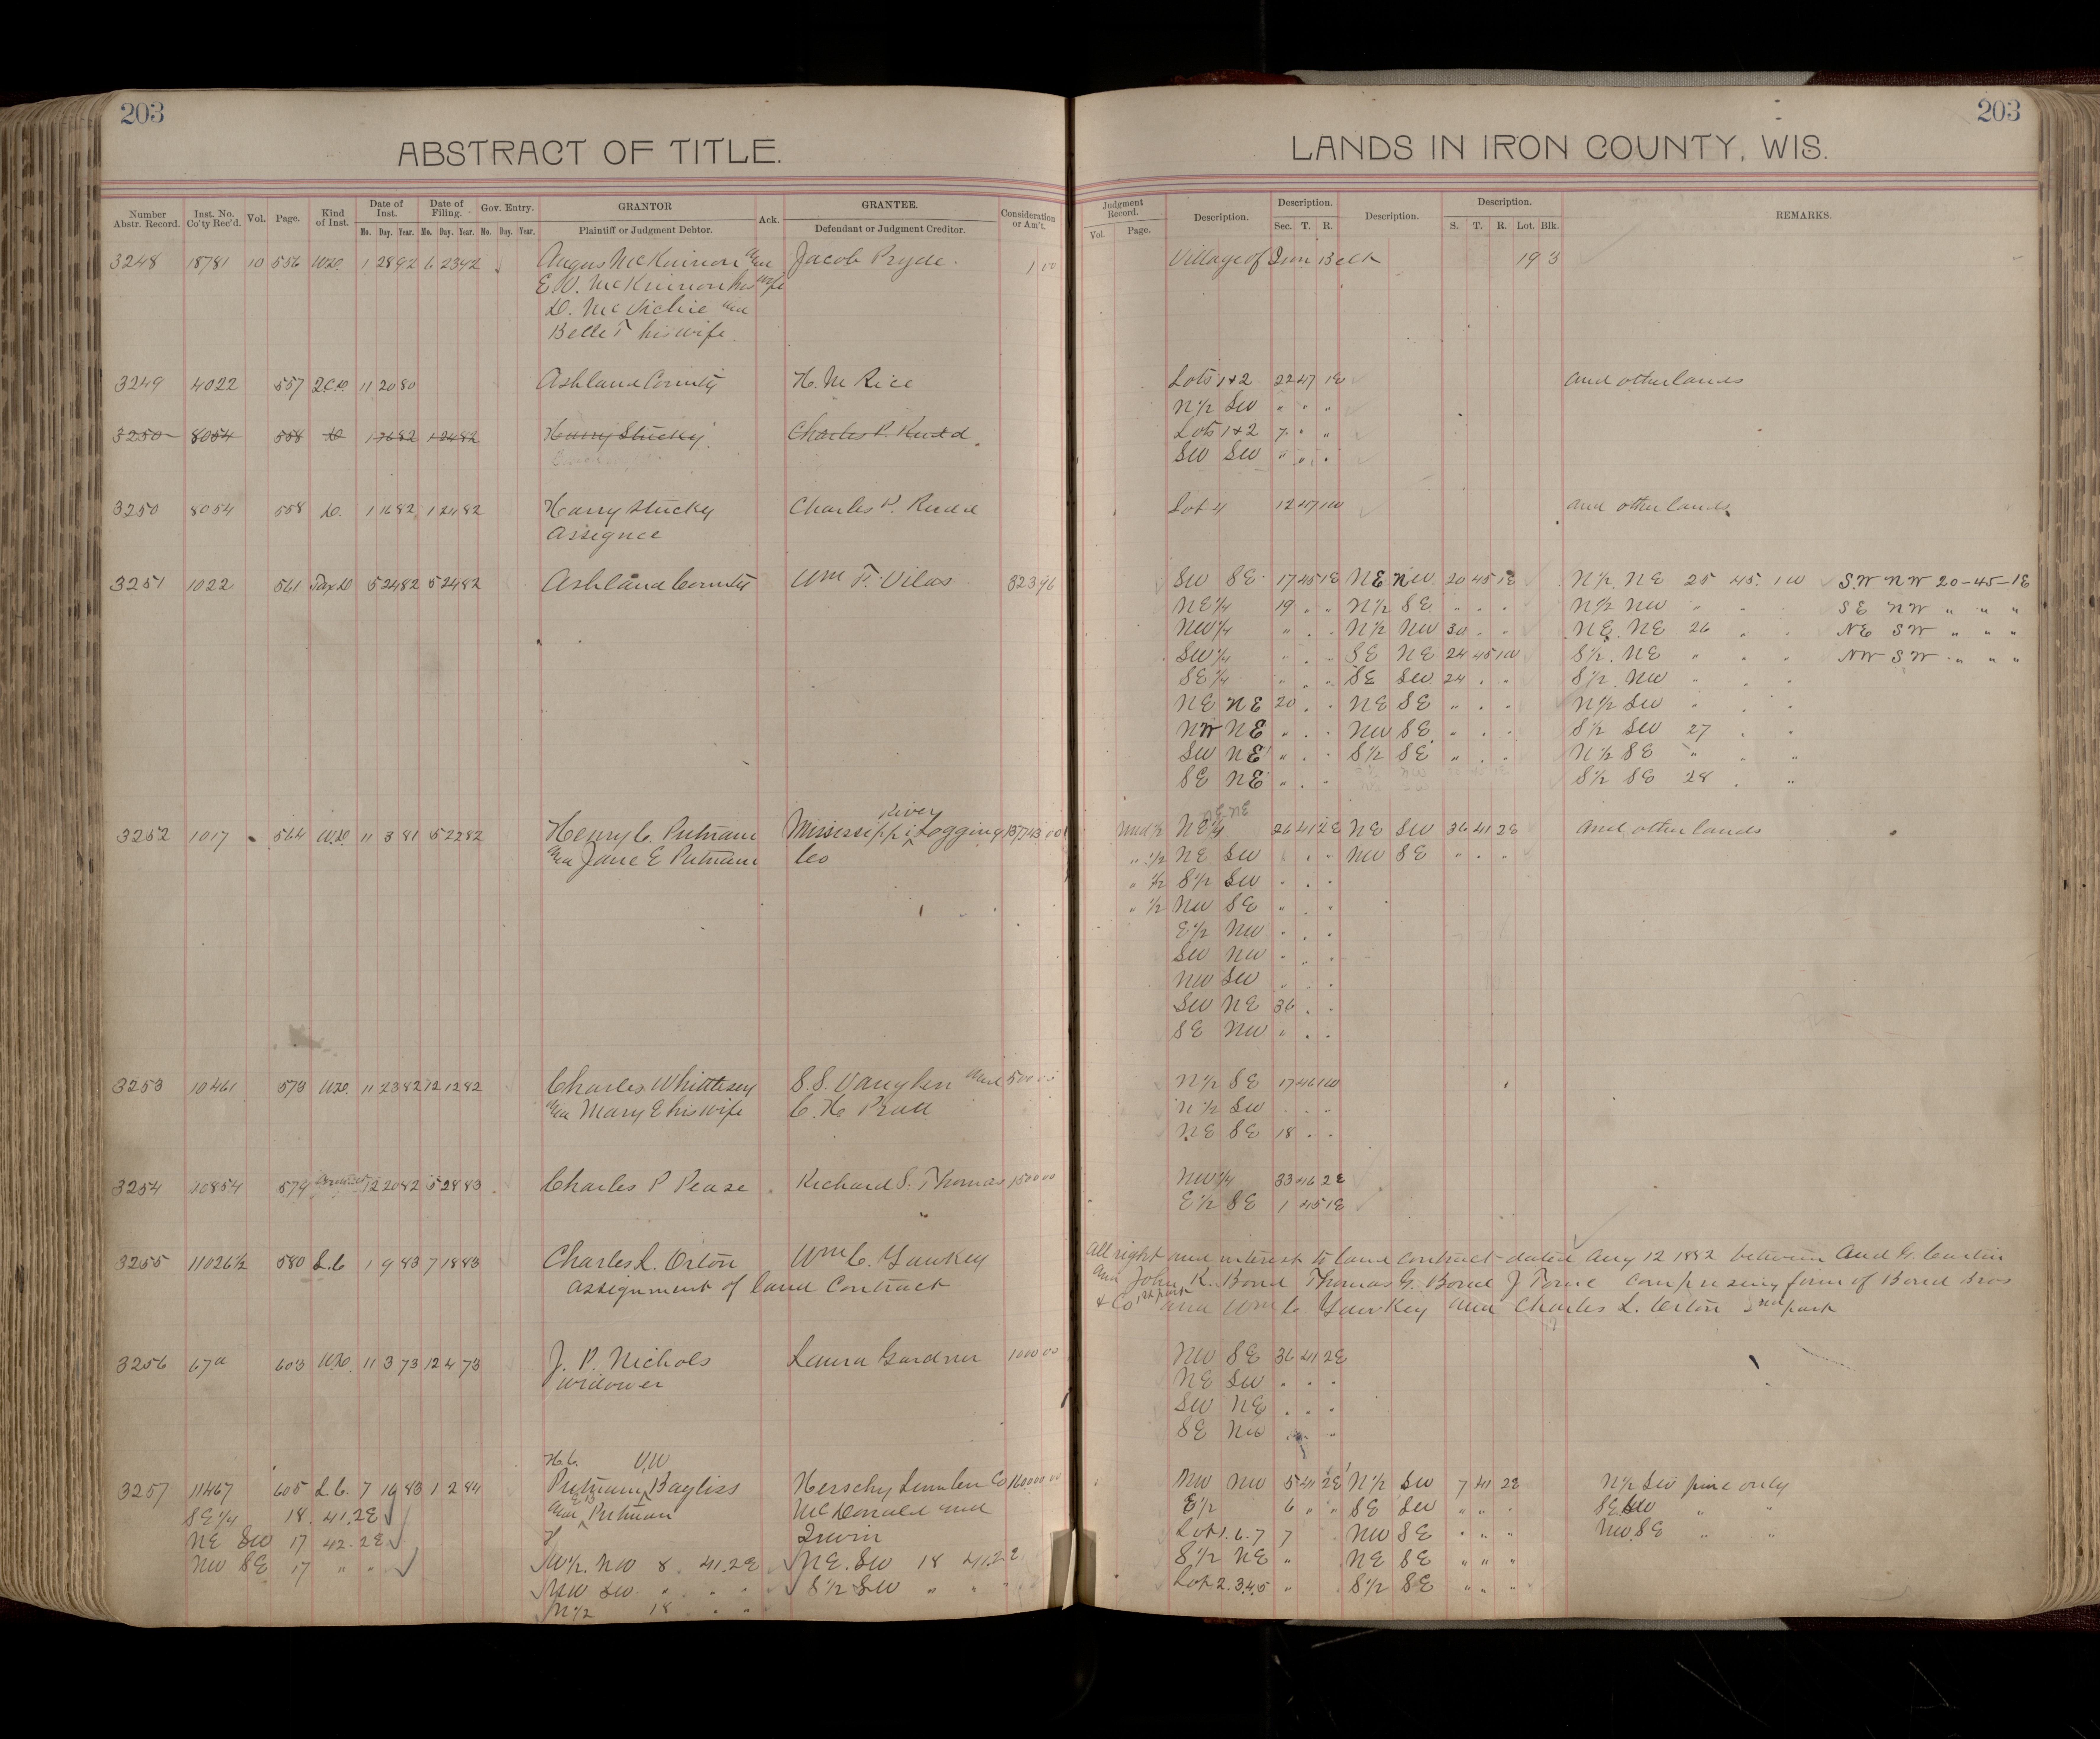 203
203
ABSTRACT OF TITLE.
LANDS IN IRON COUNTY, WIS.
Number Abstr. Record. Inst. No. Co'ty Rec'd. Vol. Page. Kind of Inst. Date of Inst. Mo. Day. Year. Date of Filing. Mo. Day. Year. Gov. Entry. Mo. Day. Year. GRANTOR Plaintiff or Judgment Debtor. Ack. GRANTEE. Defendant or Judgment Creditor. Consideration or Am't.
Judgment Record. Vol. Page. Description. Description. Sec. T. R. Description. Description. S. T. R. Lot. Blk. REMARKS.
3248 18781 10 556 W.D. 1 28 92 6 23 92 Angus McKinnon and Jacob Pryde. 1 00 Village of Iron Belt 19 3
E. W. McKinnon his wife
D. McVichie and
Belle T his wife
3249 4022 557 2C.D. 11 20 80 Ashland County H. M Rice Lots 1+2 22 47 1E and other lands
N 1/2 SW " " "
3250 8054 558 D 1 16 82 1 24 82 Harry Stucky Charles P. Rudd. Lots 1+2 7 " "
SW SW " " "
3250 8054 558 D. 1 16 82 1 24 82 Harry Stucky Charles P. Rudd Lot 4 12 47 1W and other lands
Assignee
3251 1022 561 Tax D 5 24 82 5 24 82 Ashland County Wm F. Vilas 823 96 SW SE 17 45 1E NE NW 20 45 1E N 1/2 NE 25 45 1W S.W NW 20-45-1E
NE 1/4 19 " " N 1/2 SE " " " N 1/2 NW " " " SE NW " " "
NW 1/4 " " " N 1/2 NW 30 " " NE NE 26 " " NE SW " " "
SW 1/4 " " " SE NE 24 45 1W S 1/2 NE " " " NW SW " " "
SE 1/4 " " " SE SW 24 " " S 1/2 NW " " "
NE NE 20 " " NE SE " " " N 1/2 SW " " "
NW NE " " " NW SE " " " S 1/2 SW 27 " "
SW NE " " " S 1/2 SE " " " N 1/2 SE " " "
SE NE " " " S 1/2 SE 28 " "
3252 1017 564 W.D. 11 3 81 5 22 82 Henry C. Putnam Mississippi River Logging 137743 00 Und 1/2 NE 1/4 NE NE 26 41 2E NE SW 36 41 2E and other lands
and Jane E Putnam Co " 1/2 NE SW " " NW SE " " "
" 1/2 S 1/2 SW " " "
" 1/2 NW SE " " "
E 1/2 NW " " "
SW NW " " "
NW SW " " "
SW NE 36 " "
SE NW " " "
3253 10461 573 W.D. 11 23 82 12 12 82 Charles Whittlesey S. S. Vaughn and N 1/2 SE 17 46 1W
and Mary E his wife C. H Pratt N 1/2 SW " " "
NE SE 18 " "
3254 10854 579 Contract 12 20 82 5 28 83 Charles P Pease Richard S. Thomas 1500 00 NW 1/4 33 46 2E
E 1/2 SE 1 45 1E
3255 11026 1/2 580 L.C 1 9 83 7 18 83 Charles L. Orton Wm C. Yawkey All right and interest to land contract dated Aug 12 1882 between
assignment of land Contract and John K. Bond Thomas G. Bond J comprising firm of Bond Bros
& Co 1st part and Wm C. Yawkey and Charles L. Orton 2nd part
3256 67a 603 W.D. 11 3 73 12 4 73 J. P. Nichols Laura Gardner 1000 00 NW SE 36 41 2E
widower NE SW " " "
SW NE " " "
SE NW " " "
H.C. V.W
3257 11467 605 L.C. 7 19 83 1 2 84 Putnam, Bayliss Herschy Lumber Co 16000 00 NW NW 5 41 2E N 1/2 SW 7 41 2E N 1/2 SW pine only
SE 1/4 18. 41. 2E and E B Putnam McDonald and E 1/2 6 " " SE SW " " " SE SW " "
NE SW 17 42. 2E Irwin Lot 1. 6. 7 7 NW SE " " " NW SE " "
NW SE 17 " " W 1/2 NW 8. 41. 2E NE. SW 18 41. 2E S 1/2 NE " NE SE " " "
NW SW " " " S 1/2 SW " " " Lot 2. 3. 4. 5 " S 1/2 SE " " "
N 1/2 18 " "